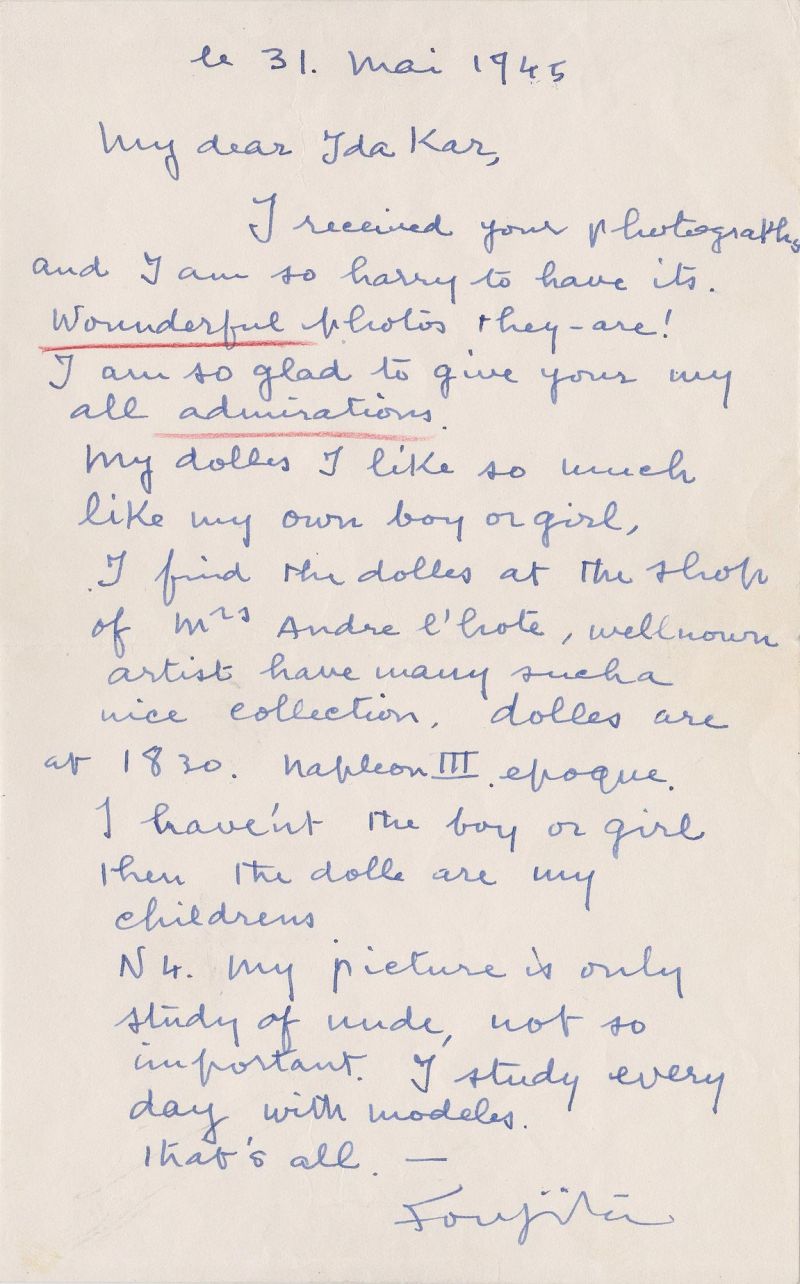 le 31. Mai 1945
My dear Ida Kar,
I received your photographs
and I am so harry to have its.
Wounderful photos they-are!
I am so glad to give your my
all admirations.
My dolles I like so much
like my own boy or girl,
I find the dolles at the shop
of Mrs Andre l'hote, wellnown
artist have many sucha
nice collection, dolles are
at 1830. Napleon III epoque.
I have'nt the boy or girl
then the dolle are my
childrens
N 4. My picture is only
study of nude, not so
important. I study every
day with modeles.
that's all. —
Foujita